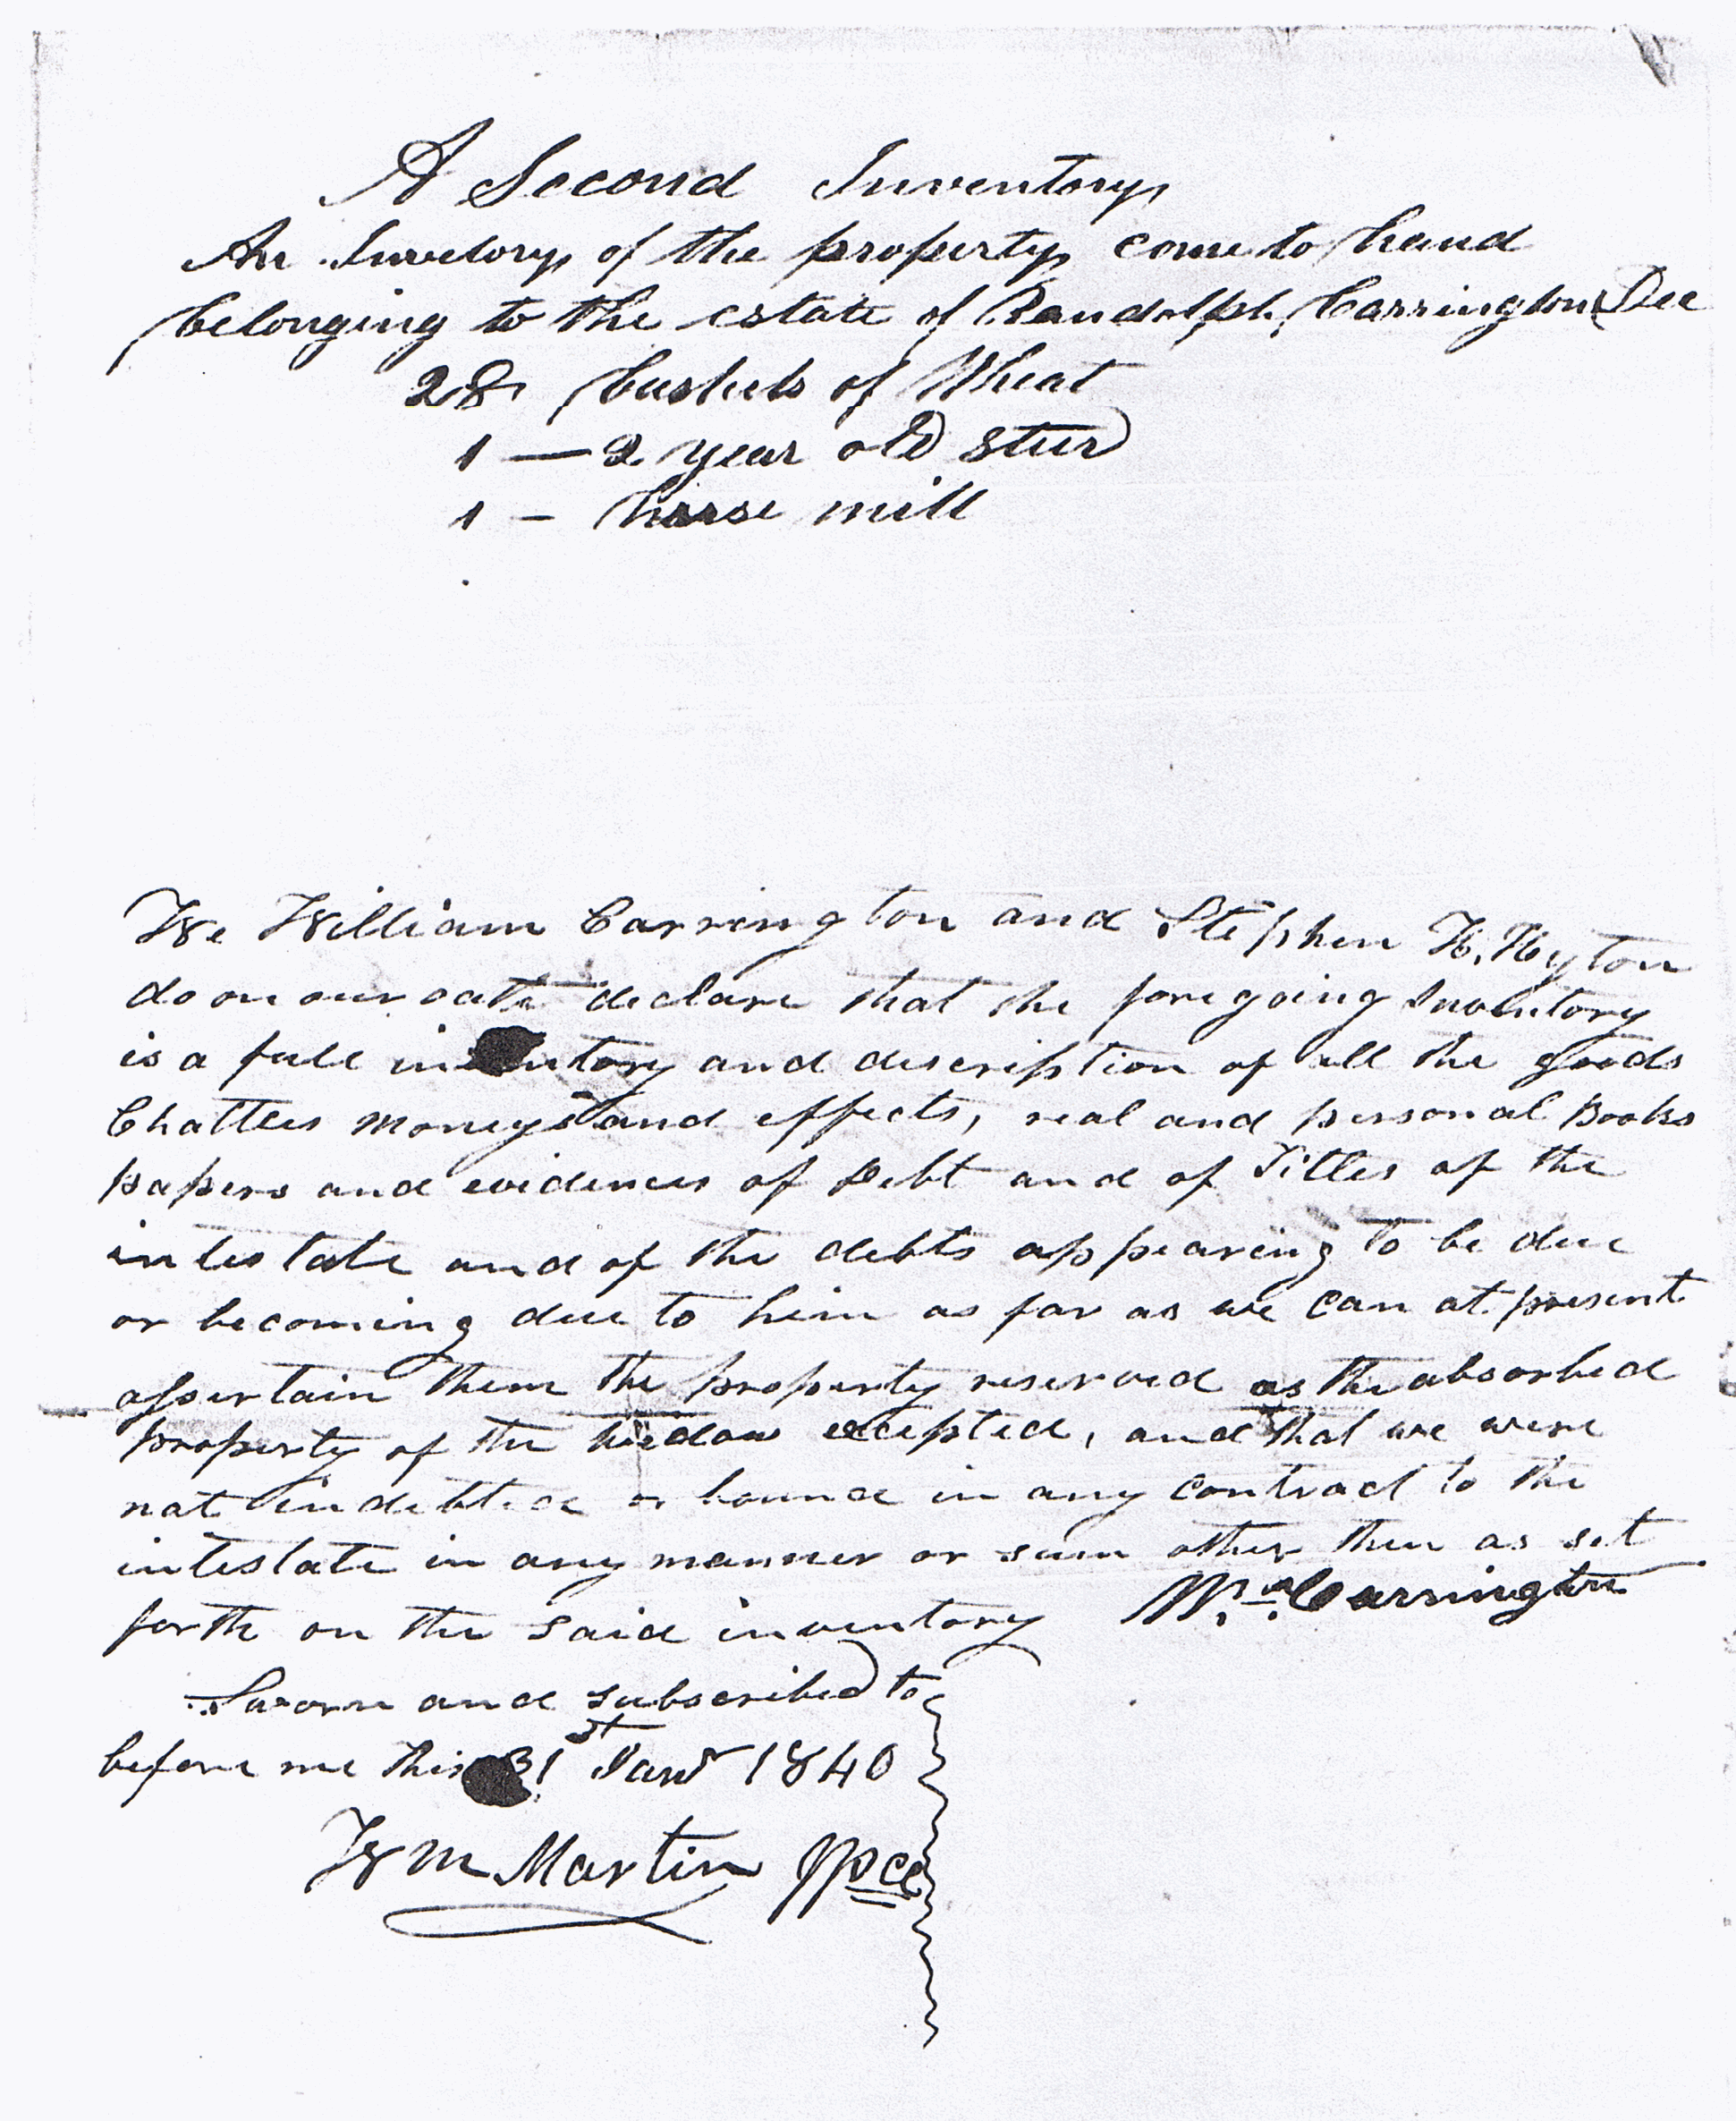 A Second Inventory
An Invetory of the property come to hand
belonging to the estate of Randolph Carrington Dec
28 bushels of Wheat
1 — 2 year old steer
1 — horse mill
We William Carrington and Stephen H. Hyton
do on our oath declare that the foregoing Inventory
is a full inventory and description of all the goods
Chattles moneys and effects, real and personal Books
papers and evidences of Debt and of Titles of the
intestate and of the debts appearing to be due
or becoming due to him as far as we can at present
assertain them the property reserved as the absorbed
property of the widow excepted, and that we were
not indebted or bound in any contract to the
intestate in any manner or sum other then as set
forth on the said inventory Wm. Carrington
Sworn and subscribed to
before me this 31st Jany 1840
Wm Martin JPCC